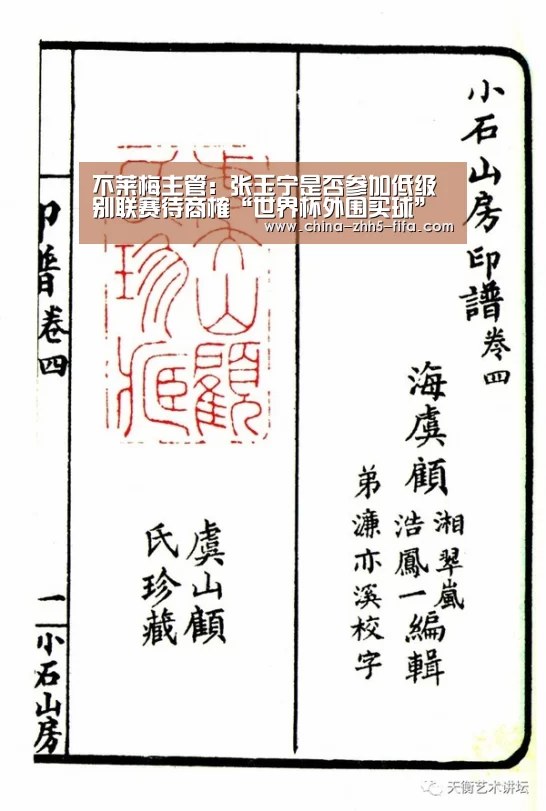 小石山房印譜卷四
海虞顧
湘翠嵐
浩鳳一
編輯
弟濂亦溪校字
不莱梅主管：张玉宁是否参加低级
别联赛待商榷“世界杯外围买球”
www.china-zhh5-fifa.com
虞山顧
氏珍藏
虞山顧
氏珍藏
印譜卷四
一
小石山房
天衡艺术讲坛